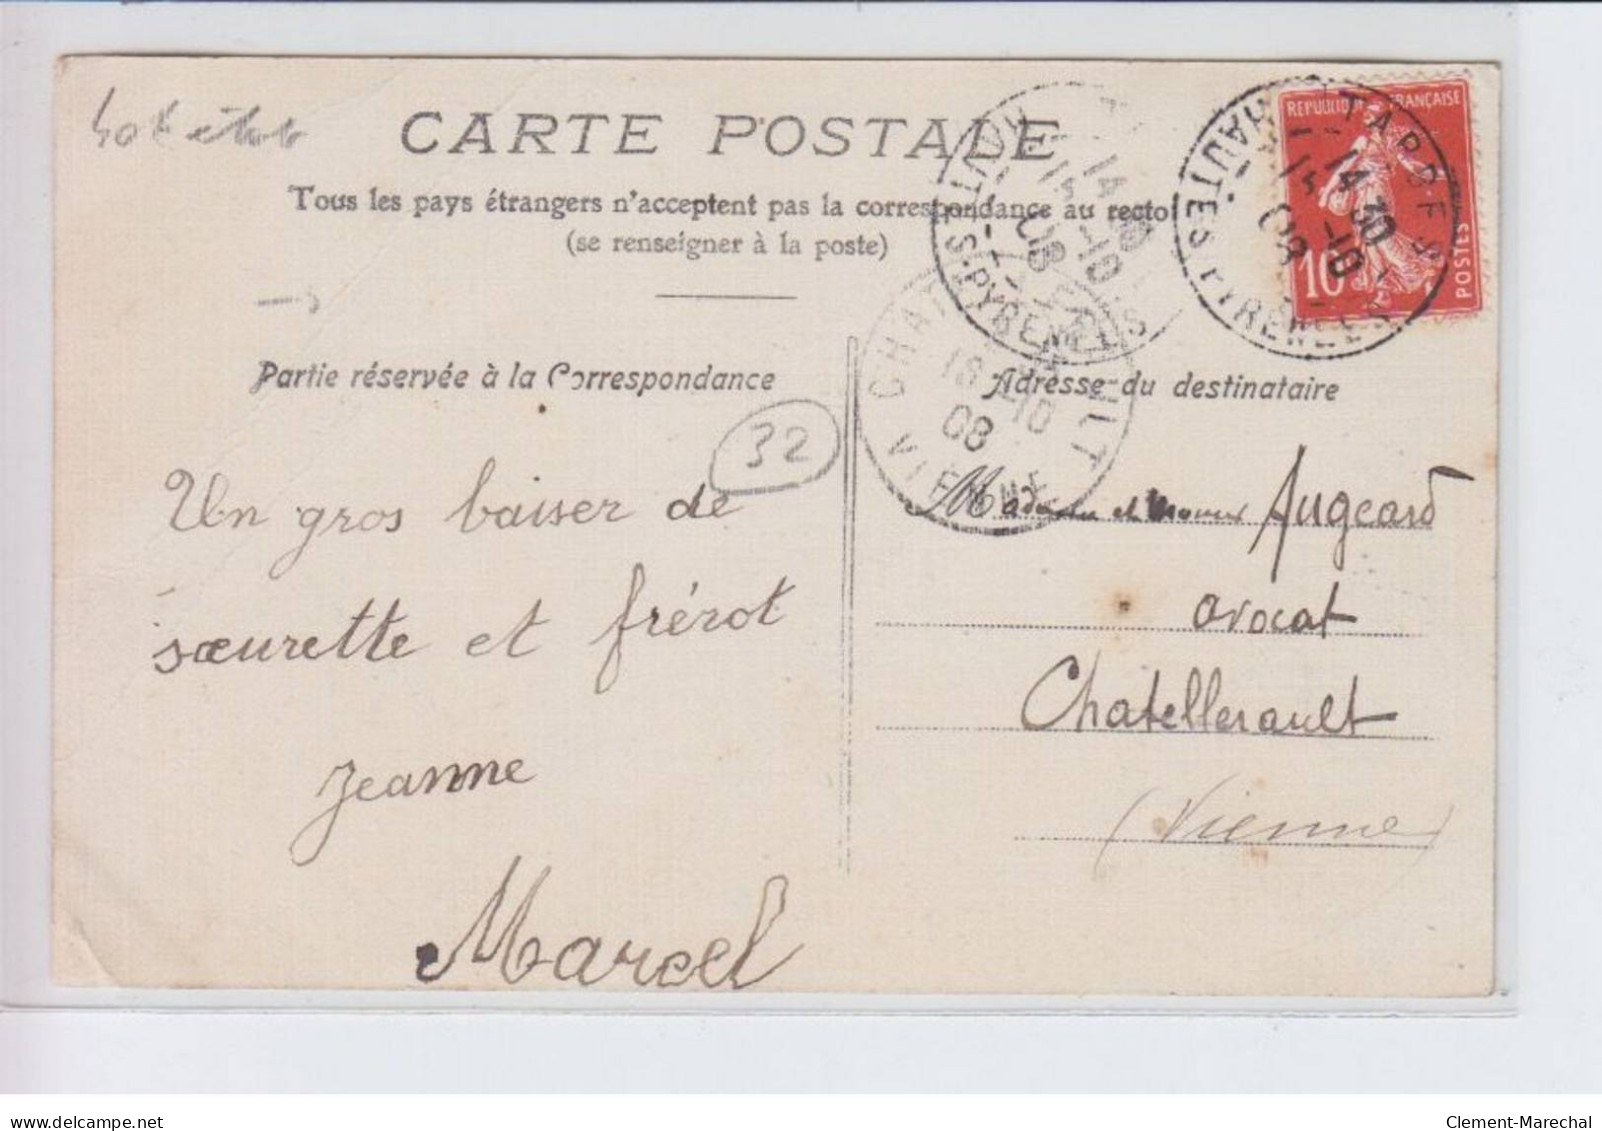 CARTE POSTALE
Tous les pays étrangers n'acceptent pas la correspondance au recto
(se renseigner à la poste)
REPUBLIQUE FRANÇAISE
10
POSTES
TARBES
HAUTES-PYRENEES
14 30
14 -10
08
14 30
14 -10
08
HAUTES-PYRENEES
CHATELLERAULT
16 -10
08
VIENNE
Partie réservée à la Correspondance
Adresse du destinataire
32
Un gros baiser de
sœurette et frérot
Jeanne
Marcel
et Augeard
avocat
Chatellerault
(Vienne)
delcampe.net
Clement-Marechal